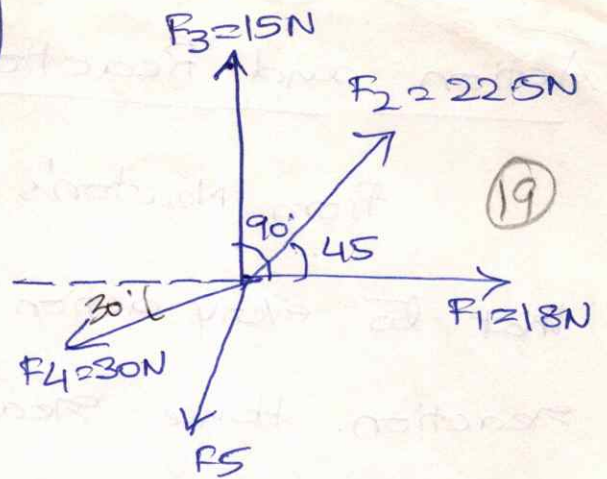 F3=15N
F2=22.5N
19
90°
45
F1=18N
30°
F4=30N
F5